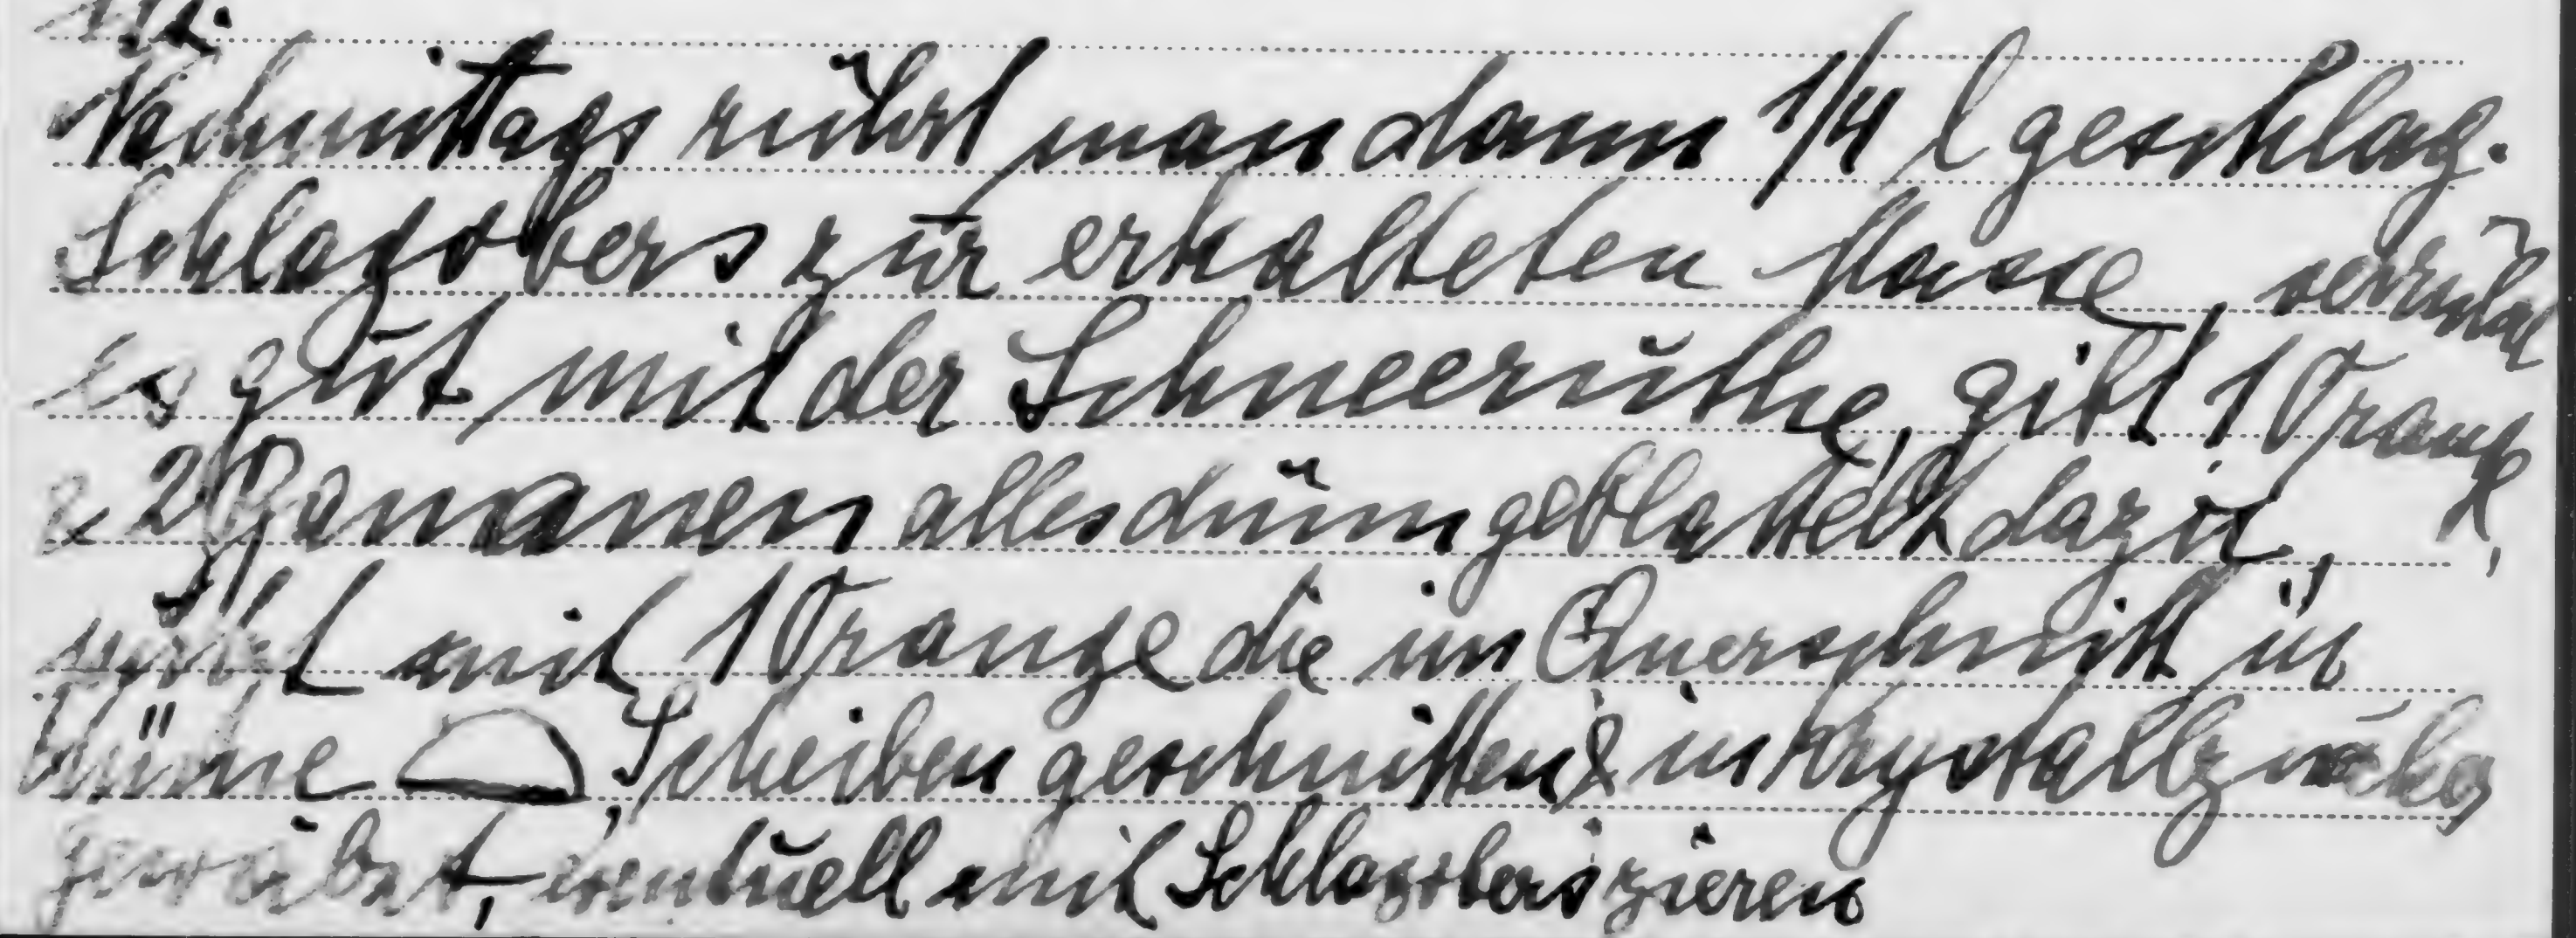 Nachmittags rührt man dann 1/4 l geschlag.
Schlagobers zur erkalteten Masse, verrührt
es gut mit der Schneeruthe, gibt 1 Orange,
& 2 Bananen alles dünn geblättelt dazu,
mit 1 Orange die im Querschnitt in
dünne Scheiben geschnitten & in Krystallzucker
, eventuell mit Schlagobers zieren